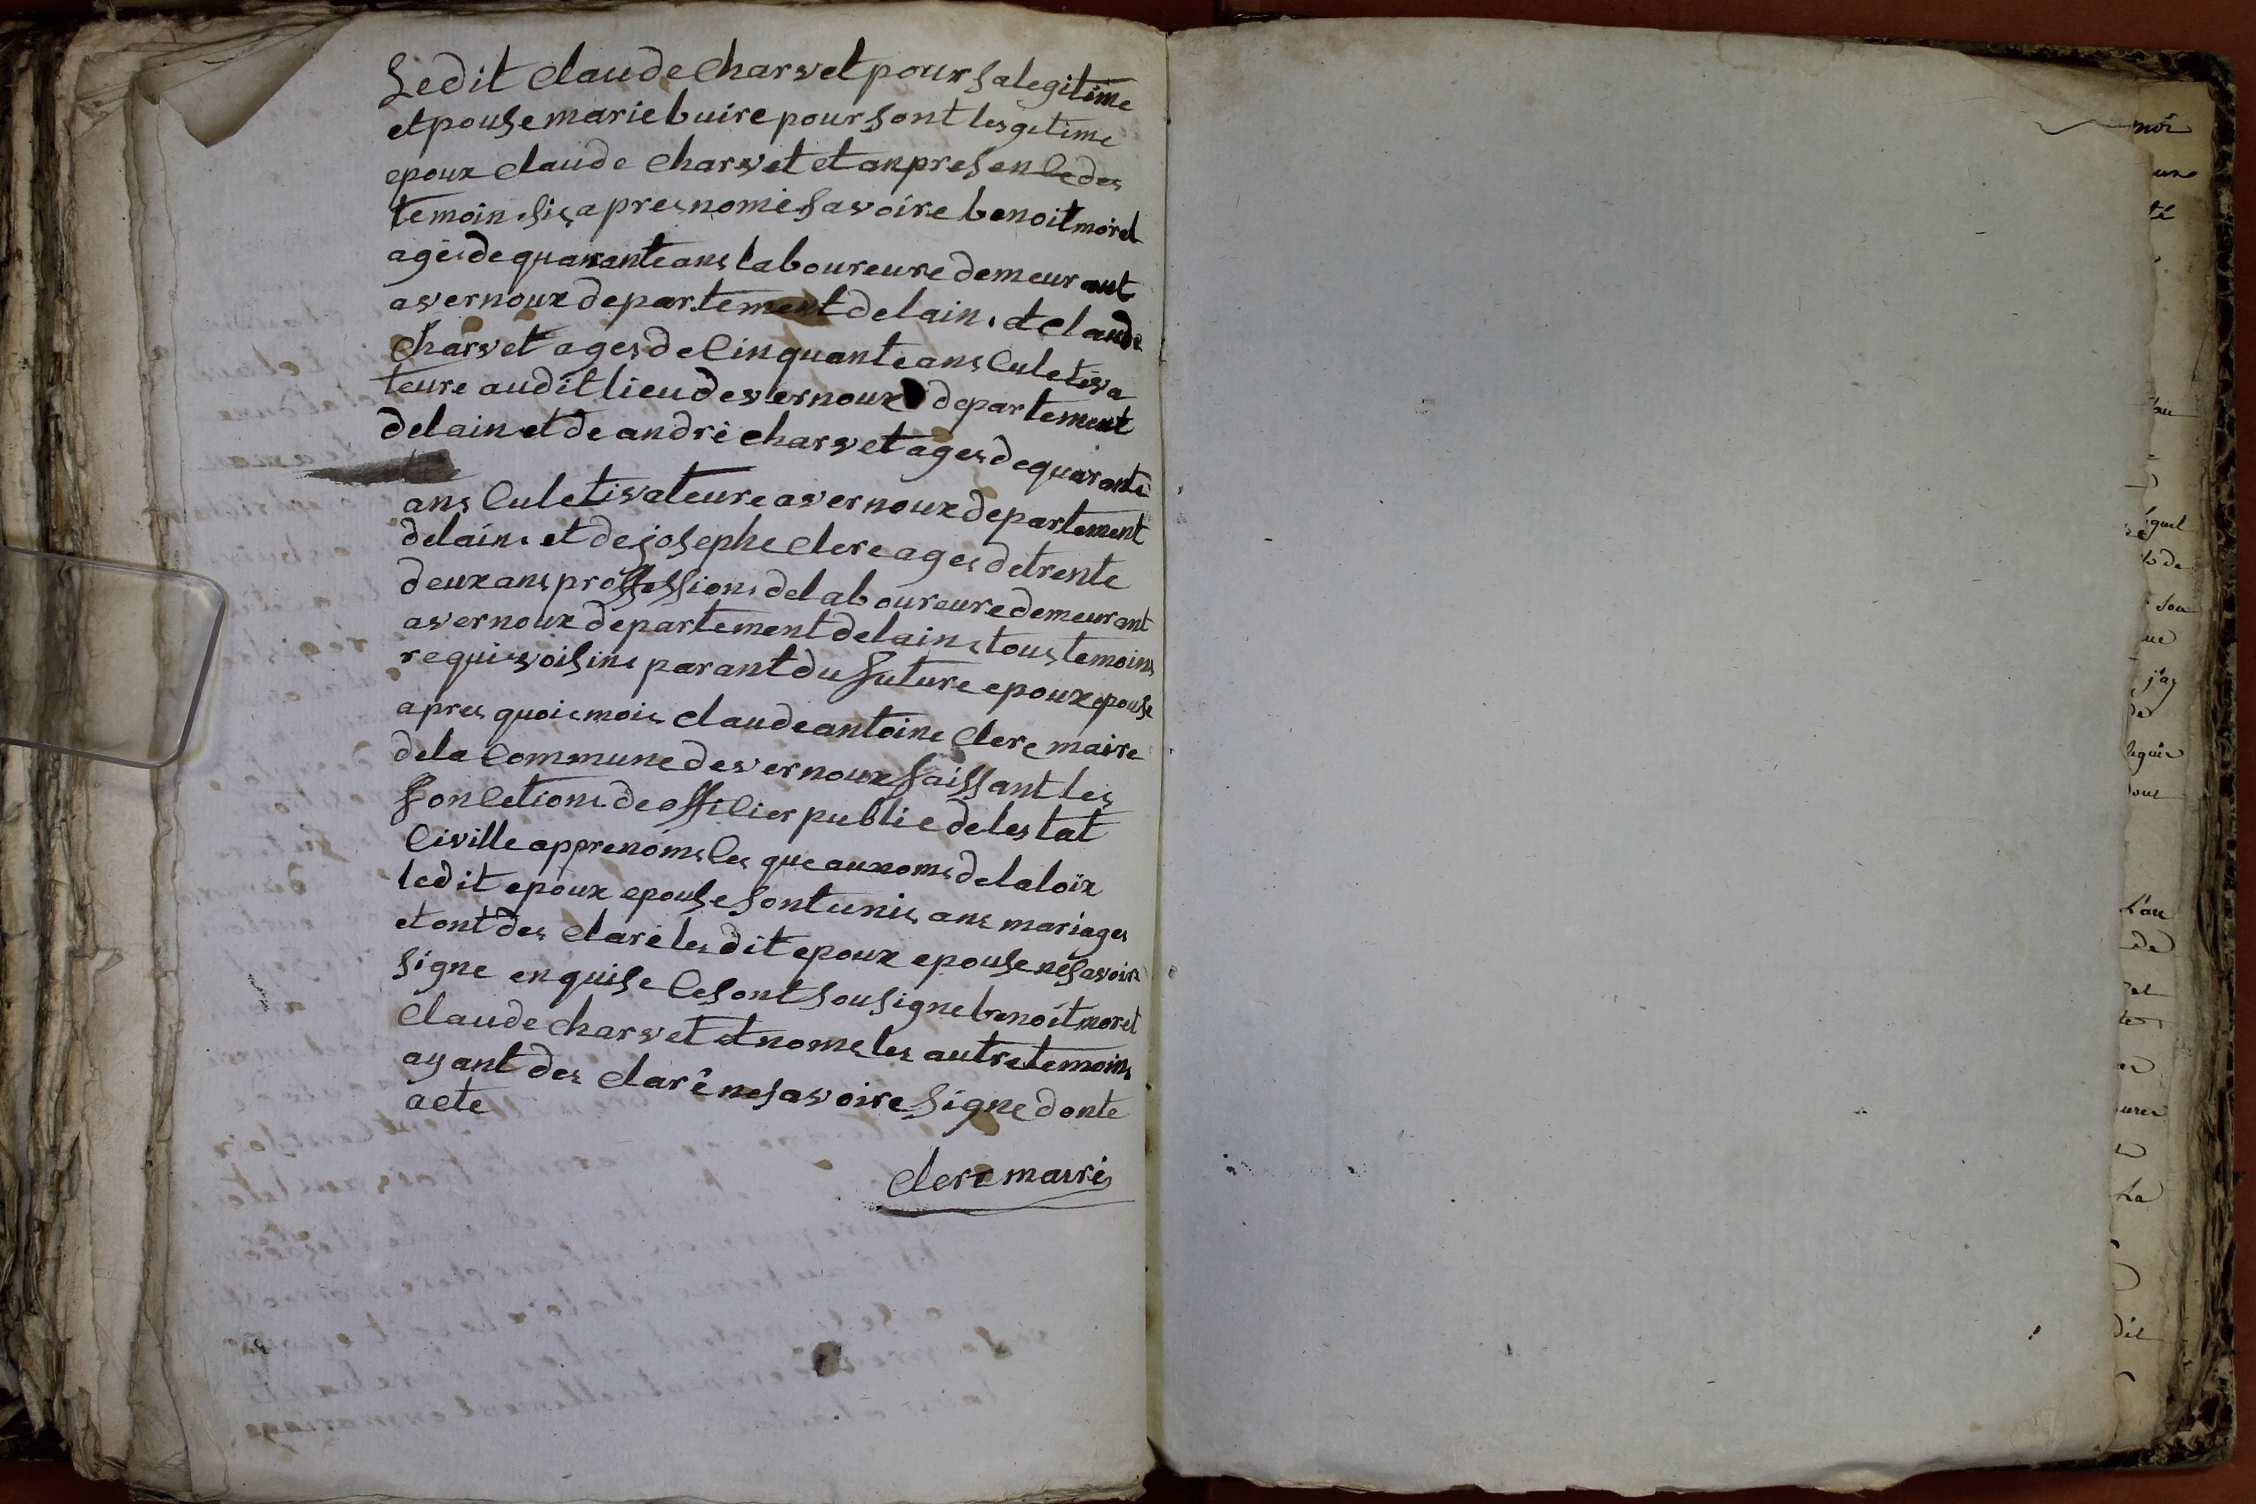 Ledit Claude Charvet pour sa legitime
et pouse marie buire pour sont lesgetime
epoux Claude Charvet et an presen ce des
temoin sis apres nome savoire benoit morel
ages de quarante ans laboureure demeurant
a vernoux departement de lain et Claude
Charvet ages de Cinquante ans Culetiva
teure audit lieu de vernoux departement
de lain et de andrê charvet ages de quarante
ans Culetivateure a vernoux departement
de lain et de josephe Clere ages de trente
deux ans proffessions de laboureure demeurant
a vernoux departement de lain tous temoins
requis voisins parant du future epoux epouse
apres quois mois Claude antoine Clere maire
de la Commune de vernoux faissant les
fonletions de offilier publie de lestat
Civille apprenoms les que au noms de la loix
ledit epoux epouse sont unis ans mariages
et ont des Clarê les dit epoux epouse ne savoire
signe en quise Ce sont sousigne benoit morel
Claude Charvet et noms les autre temoins
ayant des Clarê ne savoire signe donte
acte
Clere maire
moi
une
té
guel
de
sou
ue
j'ay
de
dous
L'an
de
La
dit